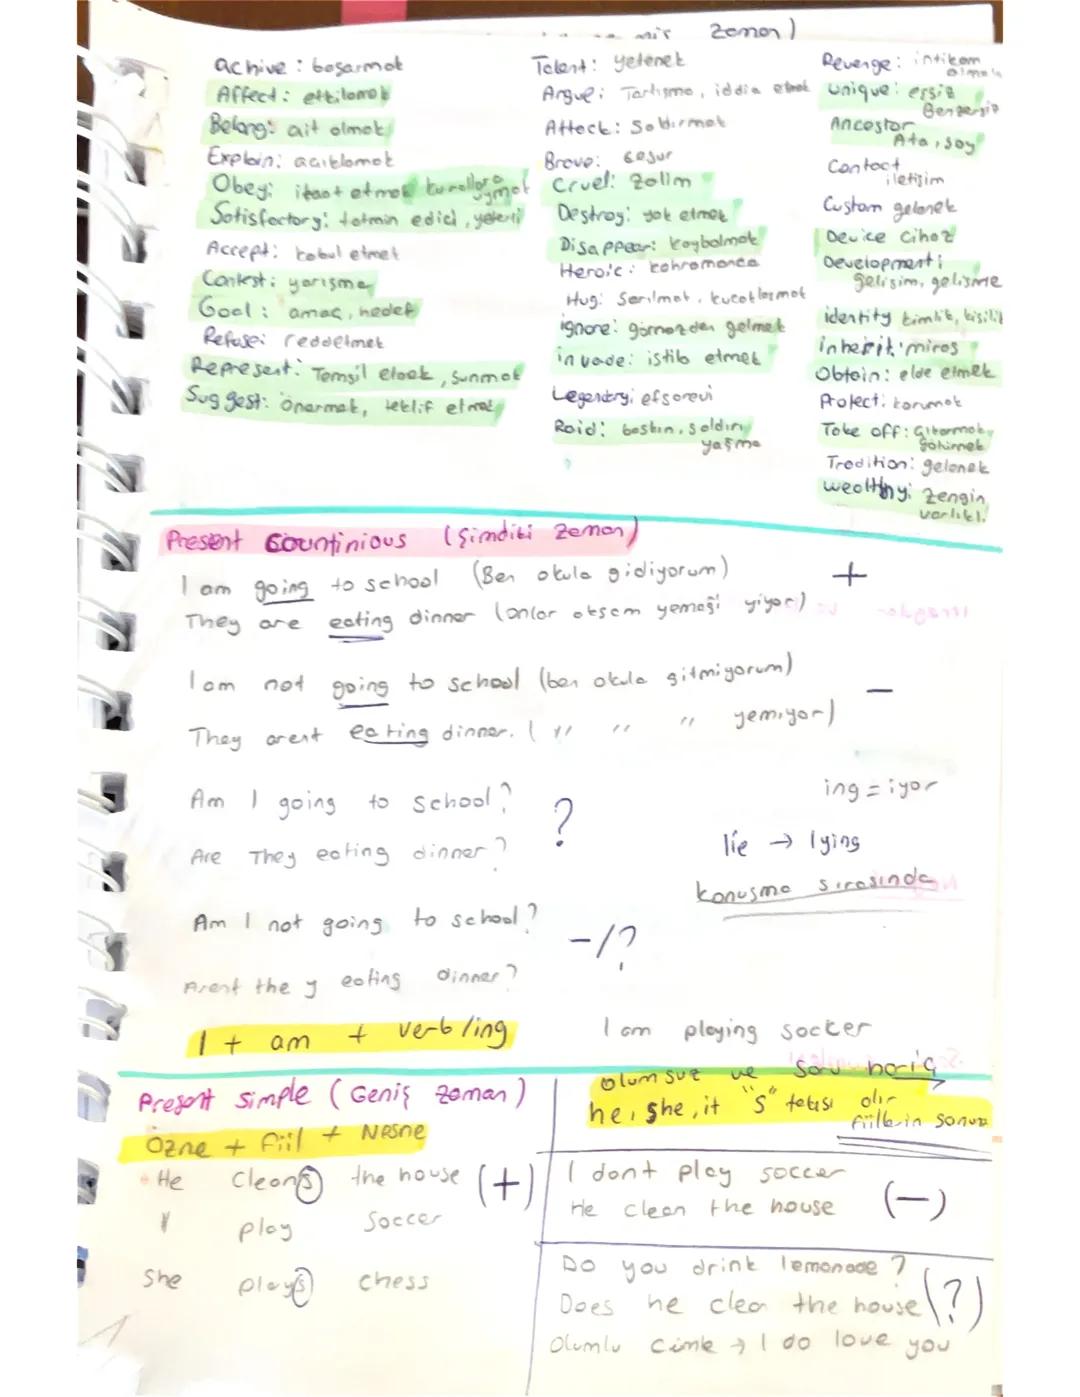 mis zaman)
achive : başarmak
Affect: etkilemek
Belong: ait olmak
Explain: acıklamak
Obey: itaat etmek kurallara uymak
Satisfactory: tatmin edici, yeterli
Accept: kabul etmek
Contest: yarışma
Goal: amaç, hedef
Refuse: reddetmek
Represent: Temsil etmek, sunmak
Suggest: önermek, teklif etmek
Talent: yetenek
Argue: Tartışma, iddia etmek
Attack: Saldırmak
Brave: cesur
Cruel: Zalim
Destroy: yok etmek
Disappear: kaybolmak
Heroic: kahramanca
Hug: Sarılmak, kucaklaşmak
ignore: görmezden gelmek
invade: istila etmek
Legendry: efsanevi
Raid: baskın, saldırı
yağma
Revenge: intikam
almak
Unique: eşsiz
Benzersiz
Ancestor
Ata, soy
Contact
iletişim
Custom gelenek
Device Cihaz
Development:
gelişim, gelişme
identity kimlik, kişilik
inherit: miras
Obtain: elde etmek
Protect: korumak
Take off: Çıkarmak,
Tradition: gelenek
wealthy: zengin,
varlıklı
Present Countinious (Şimdiki Zaman)
I am going to school (Ben okula gidiyorum) +
They are eating dinner (onlar aksam yemeği yiyor)
I am not going to school (ben okula gitmiyorum) −
They arent eating dinner. ( " " " yemiyor)
Am I going to school? ?
Are They eating dinner?
ing = iyor
lie → lying
konusma sırasında
Am I not going to school? -/?
Arent they eating dinner?
I + am + verb/ing
I am playing soccer
Present Simple (Geniş zaman)
Özne + fiil + Nesne
He cleans the house (+)
I play Soccer
She plays chess
olumsuz ve soru hariç
he, she, it "s" takısı alır
fiillerin sonuna
I dont play soccer
He clean the house (−)
Do you drink lemonade?
Does he clea the house (?)
Olumlu cümle → I do love you